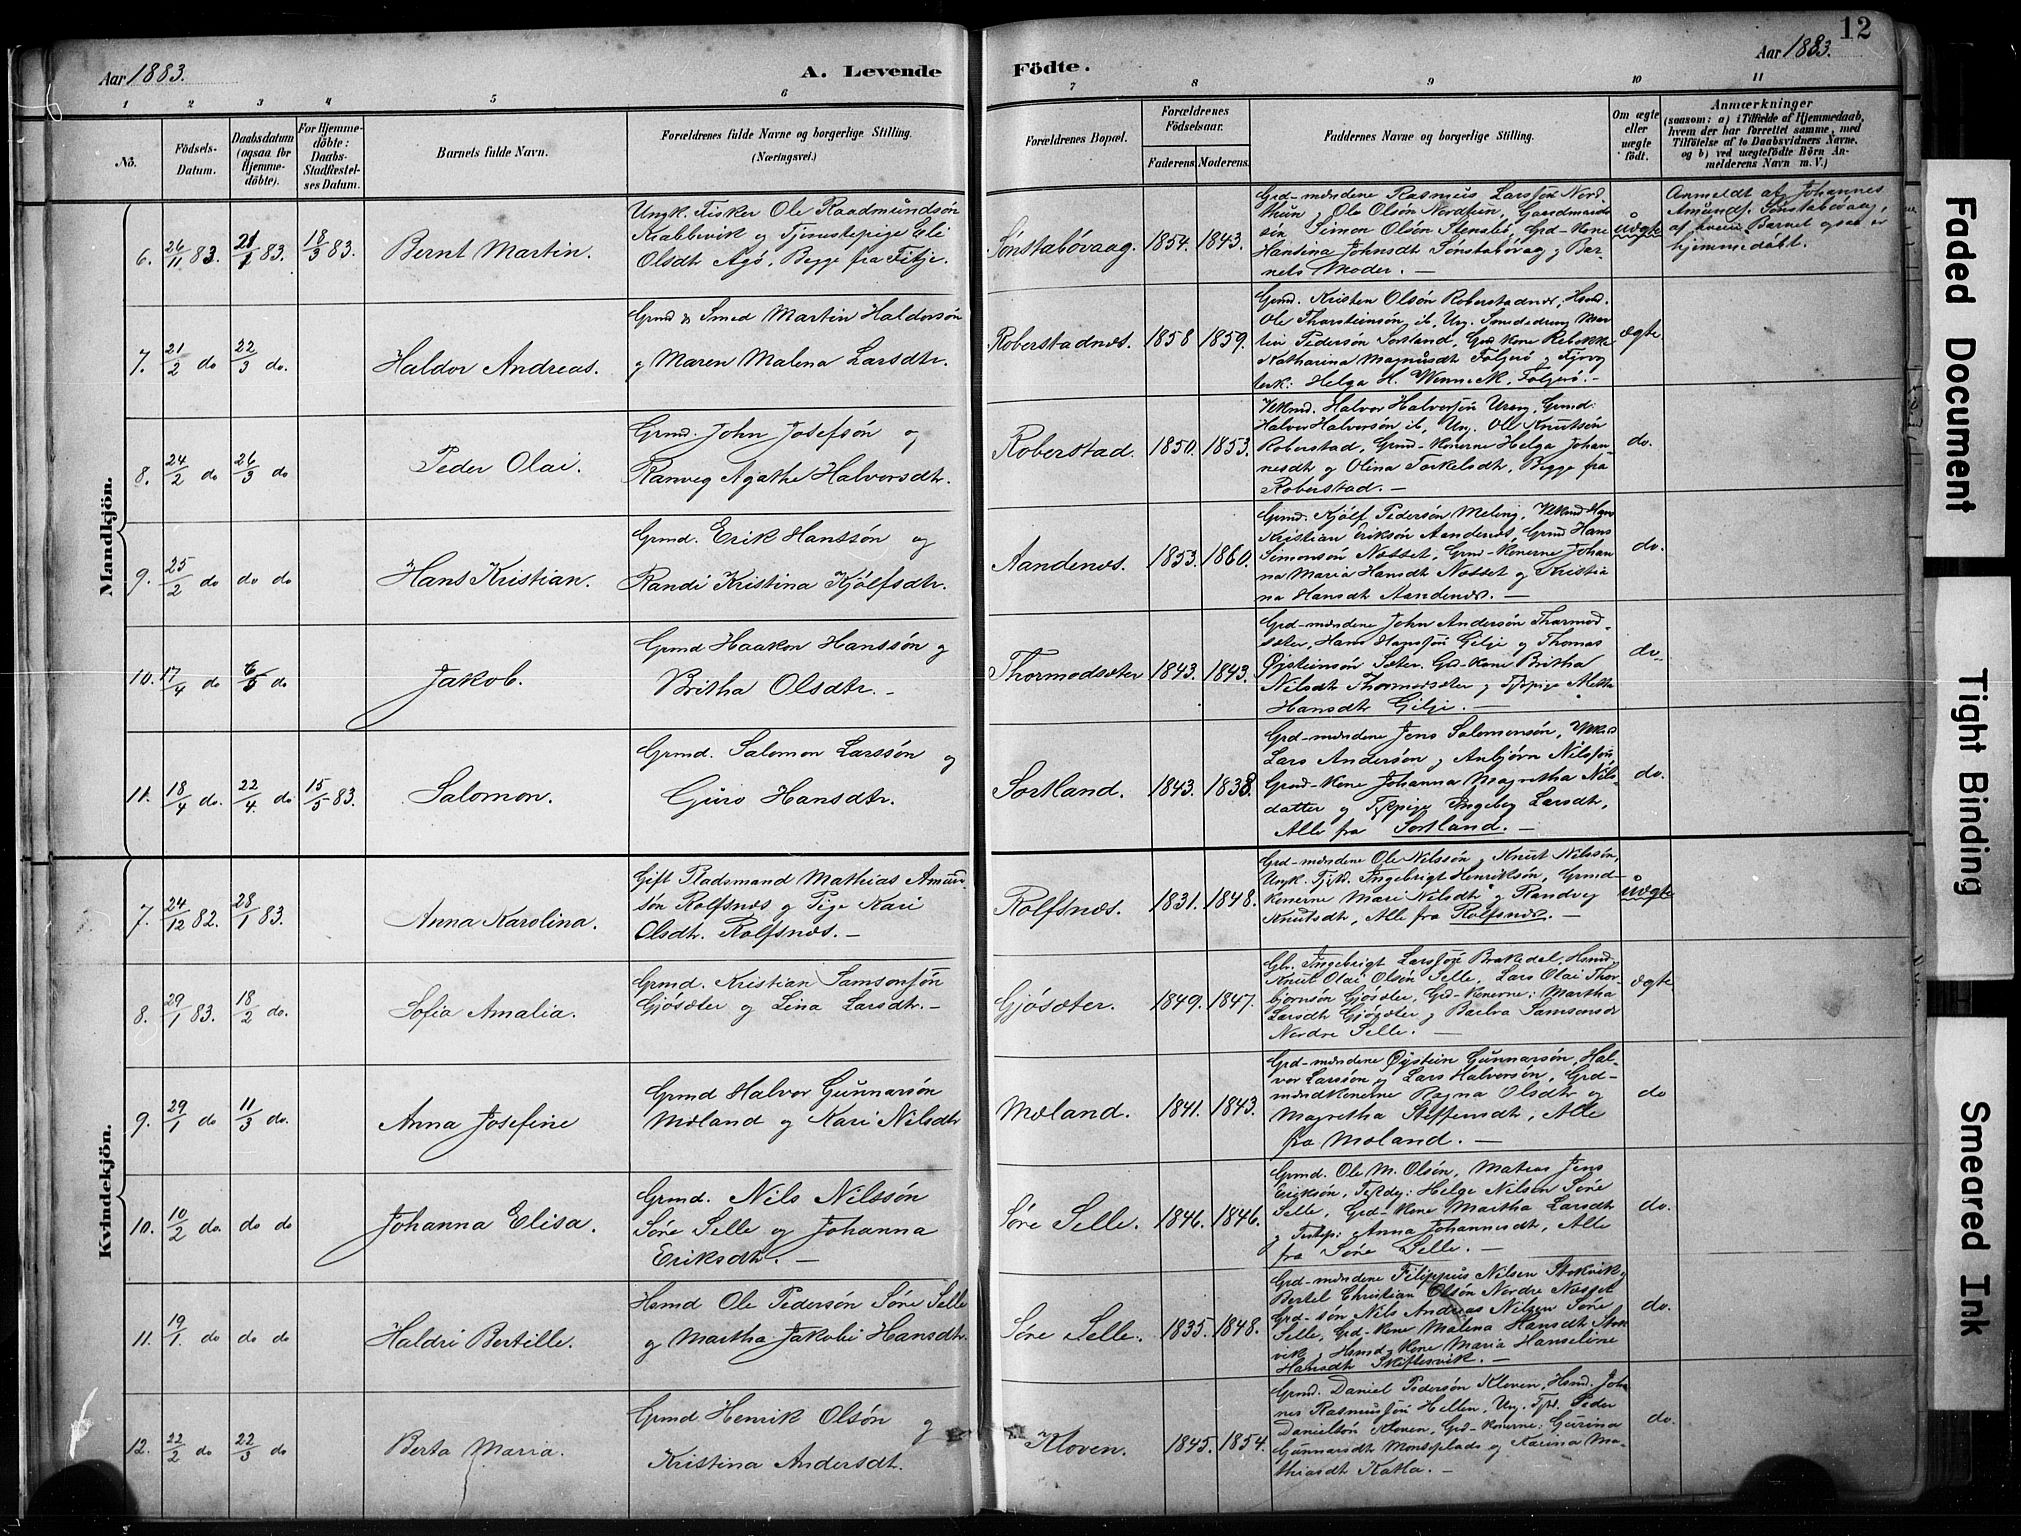 12
Aar 1883.
A. Levende
Födte.
Aar 1883.
1 2 3 4 5 6 7 8 9 10 11
No.
Födsels-
Datum.
Daabsdatum
(ogsaa for
Hjemme-
döbte).
For Hjemme-
döbte:
Daabs-
Stadfæstel-
ses Datum.
Barnets fulde Navn.
Forældrenes fulde Navne og borgerlige Stilling.
(Næringsvei.)
Forældrenes Bopæl.
Forældrenes
Födselsaar.
Faderens. Moderens.
Faddernes Navne og borgerlige Stilling.
Om ægte
eller
uægte
födt.
Anmærkninger
(saasom: a) i Tilfælde af Hjemmedaab,
hvem der har forrettet samme, med
Tilföielse af to Daabsvidners Navne,
og b) ved uægtefödte Börn An-
melderens Navn m. V.)
Mandkjön.
6. 26/11 83. 21/1 83. 18/3 83. Bernt Martin.
Ungk. Fisker Ole Raadmundsön
Krabbevik og Tjenestepige Eli
Olsdt Agö, Begge fra Fitje.
Sönstabövaag. 1854. 1843.
Grd-mændene Rasmus Larssön Nord-
thun, Ole Olsön Nordtun, Gaardmands
sön Simon Olsön Stensbö, Grd-Kone
Hansina Johnsdt Sönstabövag og Bar-
nets Moder. —
uægte
Anmeldt af Johannes
Amunds. Sönstabövaag,
af hvem Barnet ogsaa er
hjemmedöbt.
7. 21/2 do 22/3 do. Haldor Andreas.
Grmd & Smed Martin Haldorsön
og Maren Malena Larsdtr.
Roberstadnæs. 1858 1859.
Grmd. Kristen Olsön Roberstadnæs, Hsmd.
Ole Tharsteinsön ib, Ung. Smededreng Mar-
tin Pedersön Sortland, Grd Kone Rebekka
Natharina Magnusdt Folgerö og
Helga H. Wenneck, Folgerö. —
ægte
8. 24/2 do 26/3 do Peder Olai.
Grmd. John Josefsön og
Ranveg Agathe Halvorsdtr.
Roberstad. 1850. 1853.
Halvor Halvorsön Urang, Grmd:
Halvor Halvorsön ib, Ung. Ole Knutsön
Roberstad, Grmd-Konerne Helga Johan-
nesdt og Olina Torkelsdt, Begge fra
Roberstad. —
do.
9. 25/2 do do do Hans Kristian.
Grmd. Erik Hanssön og
Randi Kristina Kjölfsdtr.
Aandenæs. 1853. 1860.
Grmd. Kjölf Pedersön Meling,
Kristian Eriksön Aandenæs, Grmd Hans
Simonsön Næsset, Grmd-Konerne Johan
na Maria Hansdt Næsset og Kristia
na Hansdt Aandenæs. —
do.
10. 17/4 do 6/5 do Jakob.
Grmd Haakon Hanssön og
Britha Olsdtr. —
Thormodsæter 1843. 1843.
Grd-mændene John Andersön Thormod-
sæter, Hans Hanssön Gilje og Thomas
Øysteinsön Sæter. Grd-Kone Britha
Nilsdt Thormodsæter og Tjpige Metta
Hansdt Gilje. —
do.
11. 18/4 do. 22/4. do 15/5 83. Salomon.
Grmd. Salomon Larssön og
Guro Hansdtr.
Sortland. 1843. 1838.
Grd-mændene Jens Salomonsön,
Lars Andersön og Anbjörn Nilssön,
Grmd-Kone Johanna Magretha Nils-
datter og Tjpige Ingeborg Larsdt,
Alle fra Sortland. —
do.
Kvindekjön.
7. 24/12 82. 28/1 83. Anna Karolina.
Gift Pladsmand Mathias Amund
sön Rolfsnæs og Pige Kari
Olsdtr. Rolfsnæs. —
Rolfsnæs. 1831. 1848.
Grd-mændene Ole Nilssön og Knut Nilssön,
Ungk. Tjstd. Ingebrigt Henriksön, Grmd-
Konerne Mari Nilsdt og Randveg
Knutsdt, Alle fra Rolfsnæs. —
uægte
8. 29/1 83. 18/2 do. Sofia Amalia.
Grmd. Kristian Samsonsön
Gjösæter og Lina Larsdtr. —
Gjösæter. 1849. 1847.
Gbr. Ingebrigt Larssön Brakedal, Hsmd,
Knut Olai Olsön Selle, Lars Olai Thor-
bjornsön Gjösæter, Grd-Konerne: Martha
Larsdt Gjösæter og Barbra Samsonsdt
Nordre Selle. —
ægte
9. 29/1 do 11/3 do. Anna Josefine
Grmd Halvor Gunnarsön
Mæland og Kari Nilsdtr
Mæland. 1841. 1843.
Grd-mændene Øystein Gunnarsön, Hal-
vor Larssön og Lars Halvorsön, Grd-
mandskonerne Ragna Olsdtr og
Magretha Steffensdt, Alle
fra Mæland. —
do
10. 10/2 do. do do Johanna Elisa.
Grmd. Nils Nilssön
Söre Selle og Johanna
Eriksdtr. —
Söre Selle. 1846. 1846.
Grmd. Ole M. Olsön, Matias Jens
Eriksön, Tjstdg: Helge Nilsen Söre
Selle, Grd-Kone Martha Larsdt
og Tjstp: Anna Johannesdt, Alle
fra Söre Selle. —
do.
11. 19/1. do do do Haldri Bertille.
Hsmd Ole Pedersön Söre Selle
og Martha Jakobi Hansdtr.
Söre Selle. 1835. 1848.
Grd-mændene Filippus Nilsen Stokvik,
Bertel Christian Olsön Nordre Næsset
Grd-sön Nils Andreas Nilsen Söre
Selle, Grd-Kone Malena Hansdt Stok
vik, Hsmd Kone Maria Hanseline
Hansdt Skiftesvik. —
do.
12. 22/2 do 22/3 do Berta Maria.
Grmd. Henrik Olsön og
Kristina Andersdt.
Kloven. 1845. 1854.
Grmd. Daniel Pedersön Kloven, Hsmd. Johan
nes Rasmussön Hellen, Ung. Tjst. Peder
Danielsön Kloven, Grd-Konerne, Gurina
Gunnarsdt Monsplads og Karina Ma-
thiasdt Katla. —
do.
Faded Document
Tight Binding
Smeared Ink